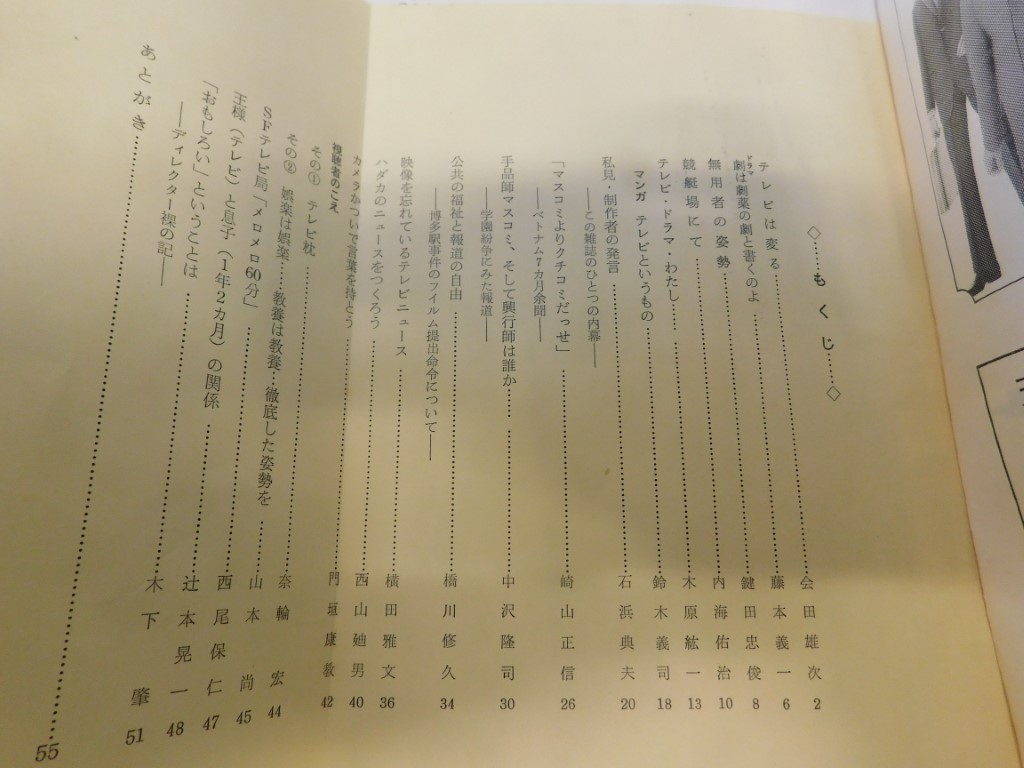 ◇もくじ◇
テレビは変る……会田雄次 2
ドラマ
劇は劇薬の劇と書くのよ……藤本義一 6
無用者の姿勢……鍵田忠俊 8
競艇場にて……内海佑治 10
テレビ・ドラマ・わたし……木原紘一 13
マンガ テレビというもの……鈴木義司 18
私見・制作者の発言……石浜典夫 20
――この雑誌のひとつの内幕――
「マスコミよりクチコミだっせ」……崎山正信 26
――ベトナム7カ月余聞――
手品師マスコミ、そして興行師は誰か……中沢隆司 30
――学園紛争にみた報道――
公共の福祉と報道の自由……橋川修久 34
――博多駅事件のフイルム提出命令について――
映像を忘れているテレビニュース……横田雅文 36
ハダカのニュースをつくろう……西山廸男 40
カメラかついで言葉を待とう……門垣康敎 42
視聴者のこえ
その① テレビ枕……奈輪宏 44
その② 娯楽は娯楽……教養は教養・徹底した姿勢を……山本尚 45
SFテレビ局「メロメロ60分」……西尾保仁 47
王様(テレビ)と息子(1年2カ月)の関係……辻本晃一 48
「おもしろい」ということは……木下肇 51
――ディレクター裸の記――
あとがき……55